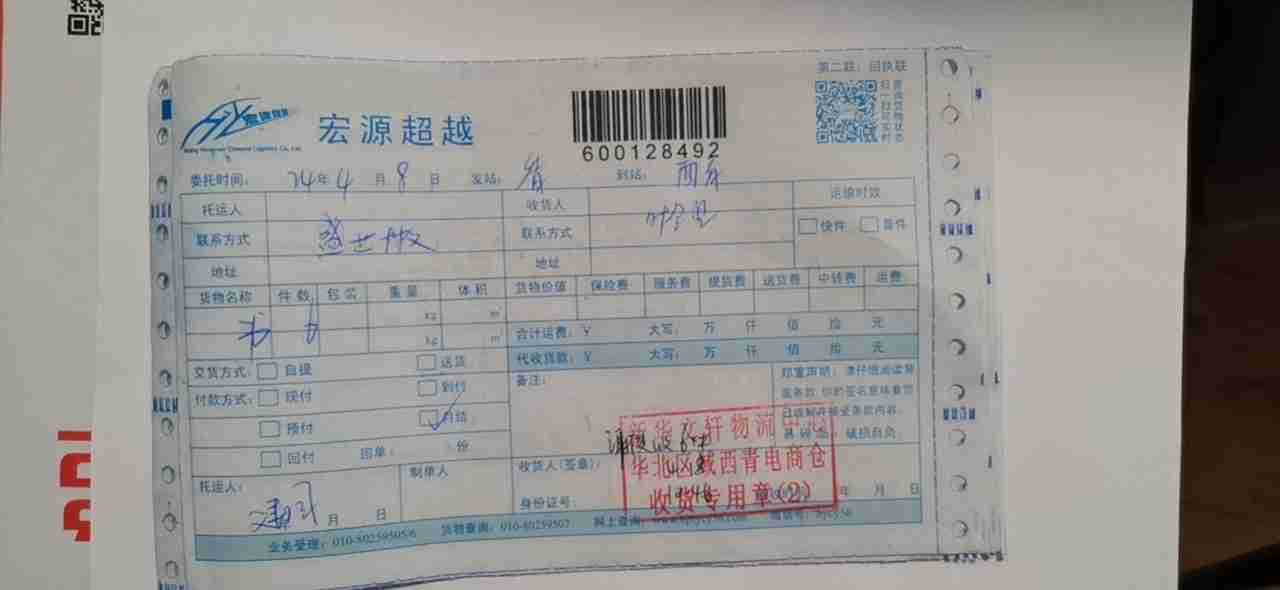 第二联：回执联
宏源超越
600128492
委托时间： 24年4月8日 发站： 到站：
托运人 收货人 运输时效
联系方式 盛世 联系方式 快件 普件
地址 地址
货物名称 件数 包装 重量 体积 货物价值 保险费 服务费 提货费 送货费 中转费 运费
书 kg m³
合计运费：￥ 大写： 万 仟 佰 拾 元
kg m³
代收货款：￥ 大写： 万 仟 佰 拾 元
交货方式： 自提 送货
备注：
付款方式： 现付 到付
预付 月结
回付 回单： 份
郑重声明：请仔细阅读背
面条款 您的签名意味着您
已理解并接受条款内容。
易碎品，破损自负
托运人： 月 日
制单人
收货人(签章)：
身份证号： 年 月 日
新华文轩物流中心
华北区域西青电商仓
收货专用章(2)
业务受理：010-80259505/6 货物查询：010-80259507 网上查询：